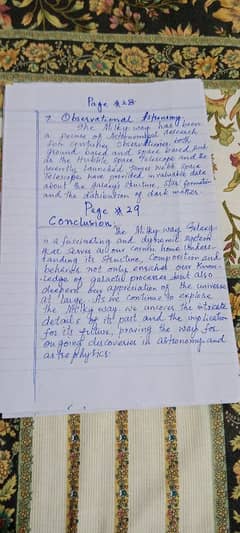 Page # 28
7. Observational Astronomy
The Milky way has been
a of Astronomical research
for centuries observations, both
ground based and space based such
as the Hubble space Telescope and the
recently launched James webb space
Telescope have provided invaluable data
about the galaxy's structure, star formation
and the distribution of dark matter.
Page # 29
Conclusion:
The Milky way Galaxy
is a fascinating and dynamic system
that serves as our cosmic home Under-
standing its structure, Composition and
behavior not only enriches our know-
ledge of galactic processes but also
deepens our appreciation of the universe
at large. As we continue to explore
the Milky way we uncover the
details of its past and the implication
for its future, paving the way for
ongoing discoveries in astronomy and
astrophysics.